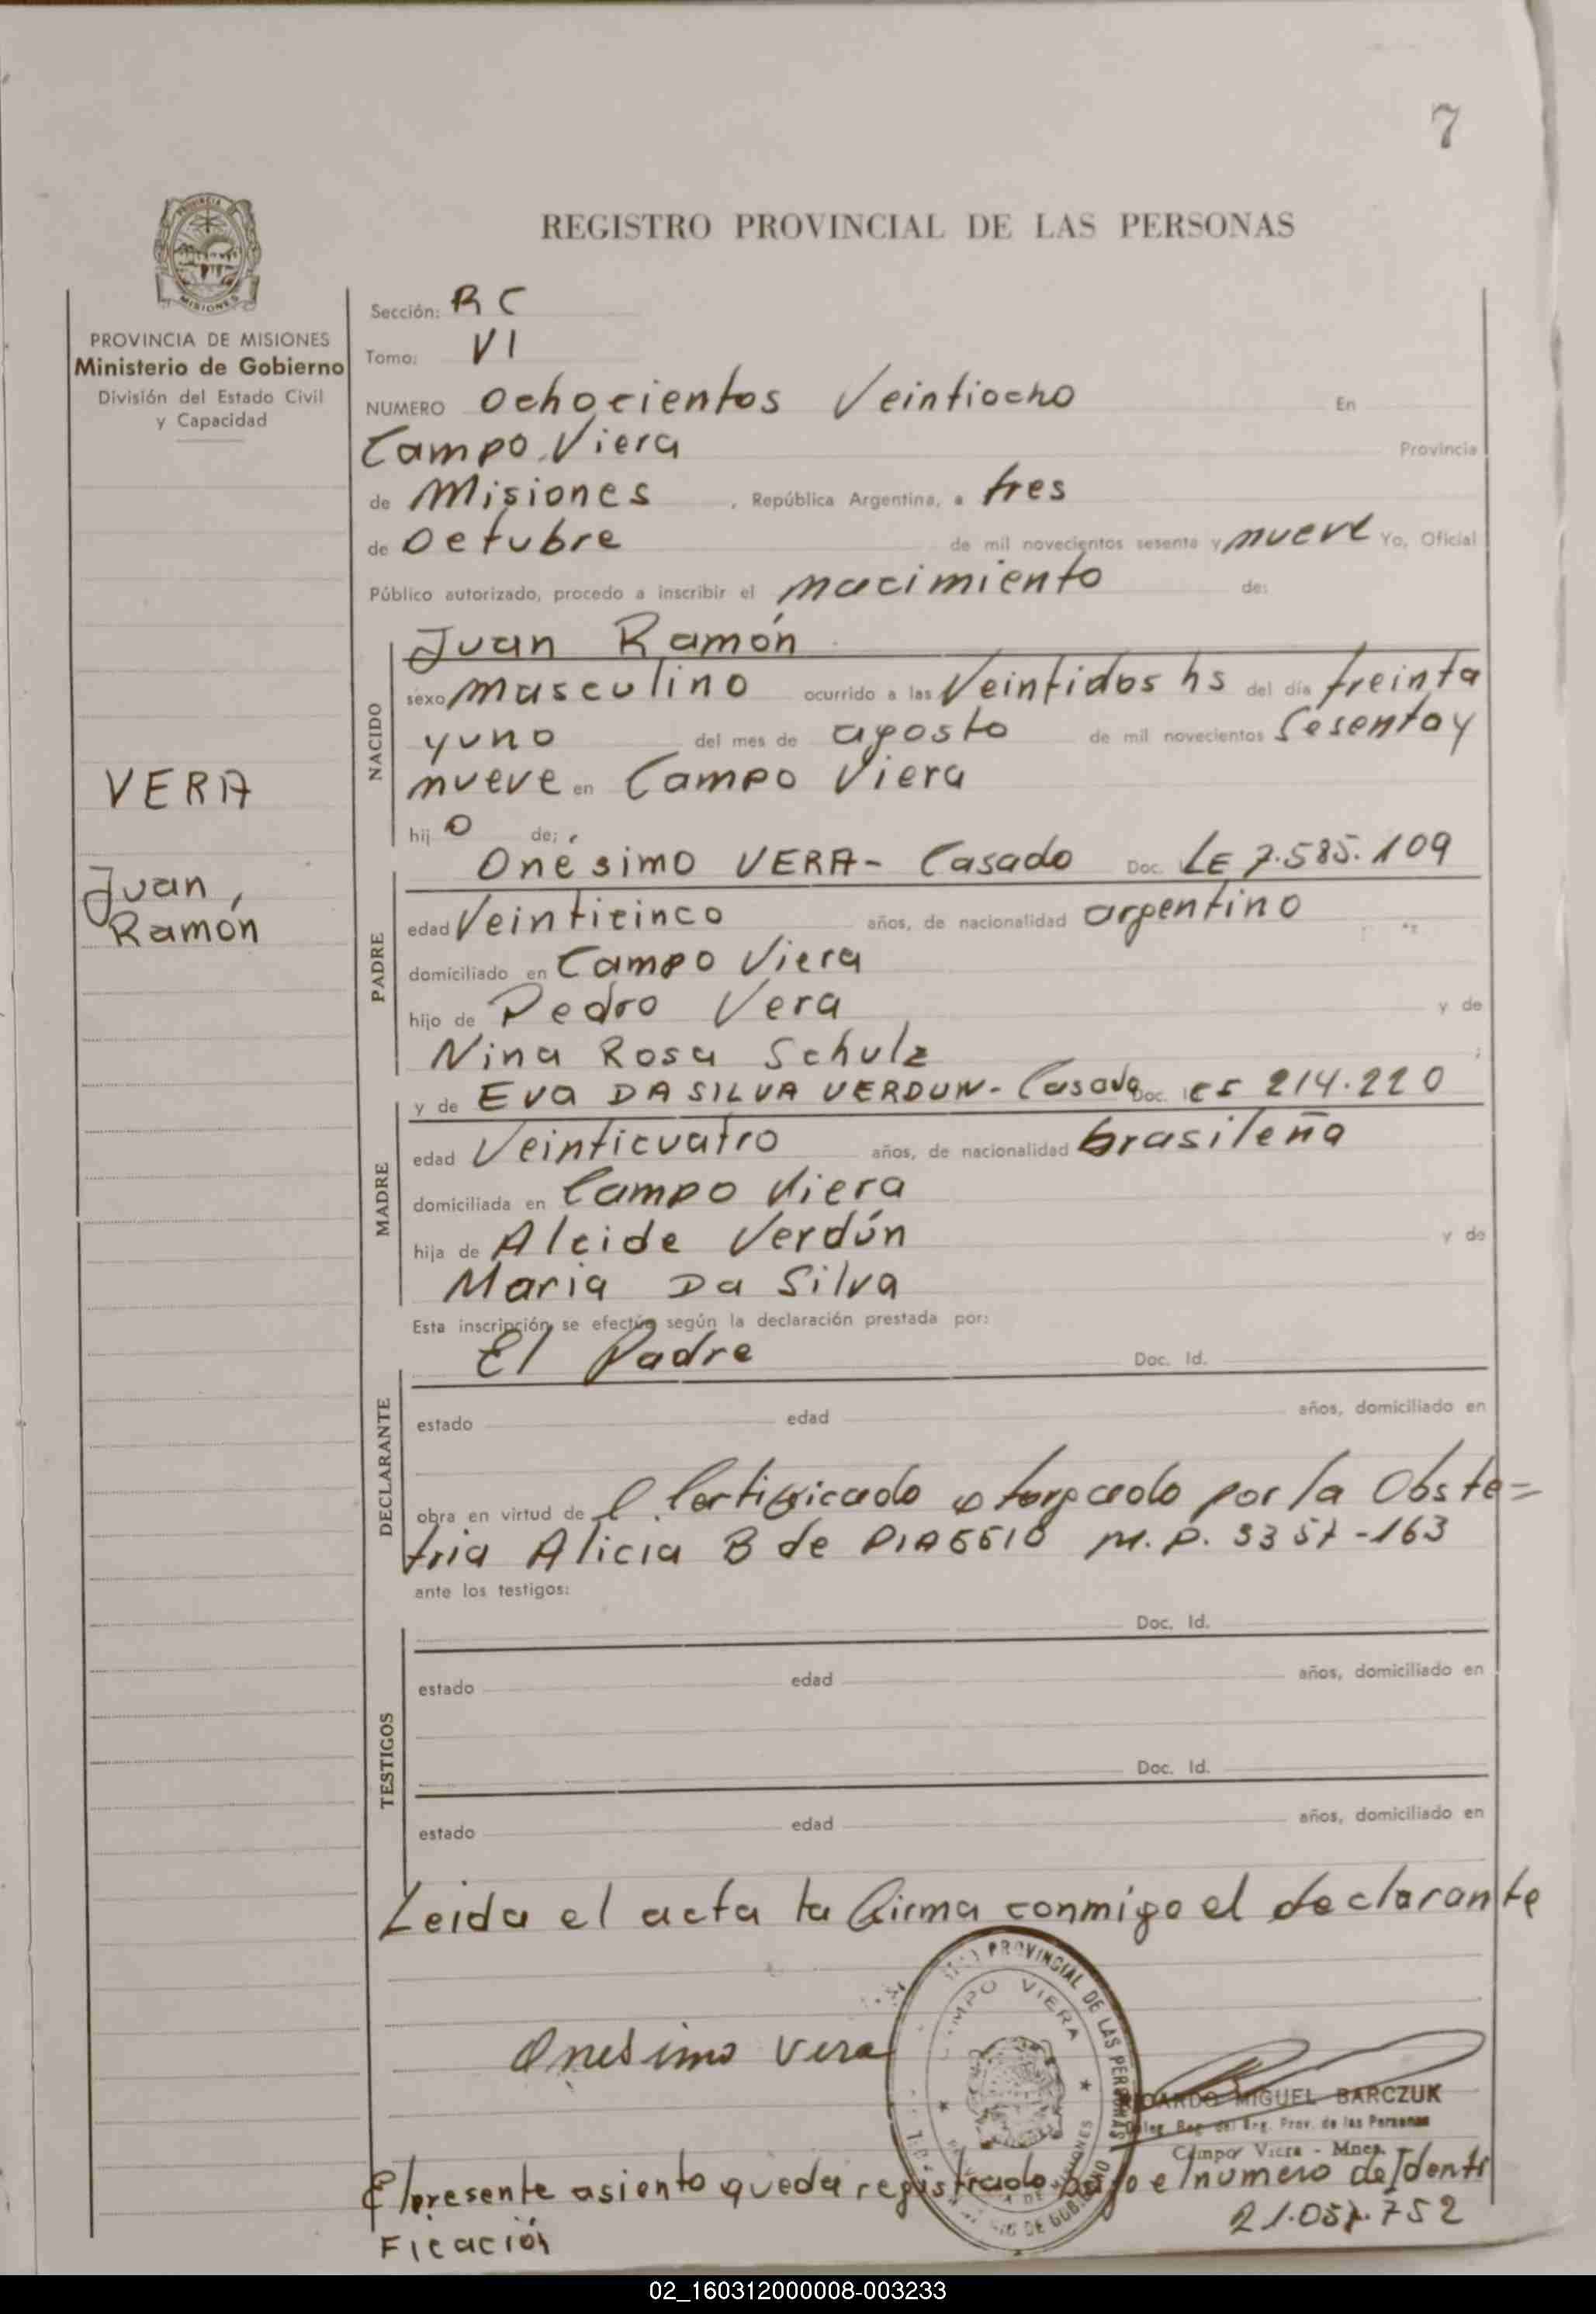 7
REGISTRO PROVINCIAL DE LAS PERSONAS
PROVINCIA DE MISIONES
Ministerio de Gobierno
División del Estado Civil
y Capacidad
VERA
Juan,
Ramón
Sección: RC
Tomo: VI
NUMERO Ochocientos Veintiocho En
Campo Viera Provincia
de Misiones, República Argentina, a tres
de Octubre de mil novecientos sesenta y nueve Yo, Oficial
Público autorizado, procedo a inscribir el nacimiento de:
NACIDO
Juan Ramón
sexo masculino ocurrido a las Veintidos hs del día treinta
y uno del mes de agosto de mil novecientos Sesenta y
nueve en Campo Viera
hij o de;
PADRE
Onésimo VERA- Casado Doc. LE 7.585.109
edad Veinticinco años, de nacionalidad argentino
domiciliado en Campo Viera
hijo de Pedro Vera y de
Nina Rosa Schulz
MADRE
y de EVA DA SILVA VERDUN- Casada Doc. 214.220
edad Veinticuatro años, de nacionalidad brasileña
domiciliada en Campo Viera
hija de Alcide Verdún y de
Maria Da Silva
Esta inscripción se efectúa según la declaración prestada por:
DECLARANTE
El Padre Doc. Id.
estado edad años, domiciliado en
obra en virtud de l Certificado otorgado por la Obste=
tria Alicia B de M.P. -163
ante los testigos:
TESTIGOS
Doc. Id.
estado edad años, domiciliado en
Doc. Id.
estado edad años, domiciliado en
Leida el acta la firma conmigo el declarante
Onesimo Vera
PROVINCIAL DE LAS PERSONAS
CAMPO VIERA
RICARDO MIGUEL BARCZUK
Deleg. Reg. del Reg. Prov. de las Personas
Campo Viera - Mnes.
El presente asiento queda registrado bajo el número de Identi
Ficación 21.057.752
02_160312000008-003233